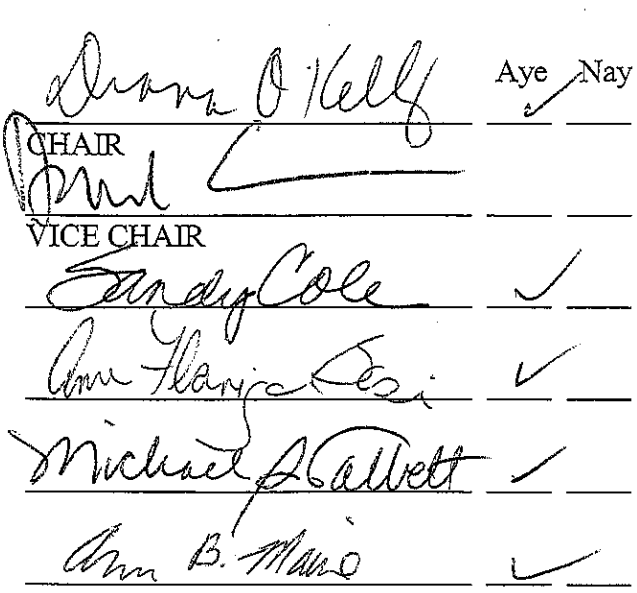 Diana O'Kelly Aye Nay
✓
CHAIR
VICE CHAIR
Sandy Cole ✓
Ann ✓
Michael Talbett ✓
Ann B. Maine ✓